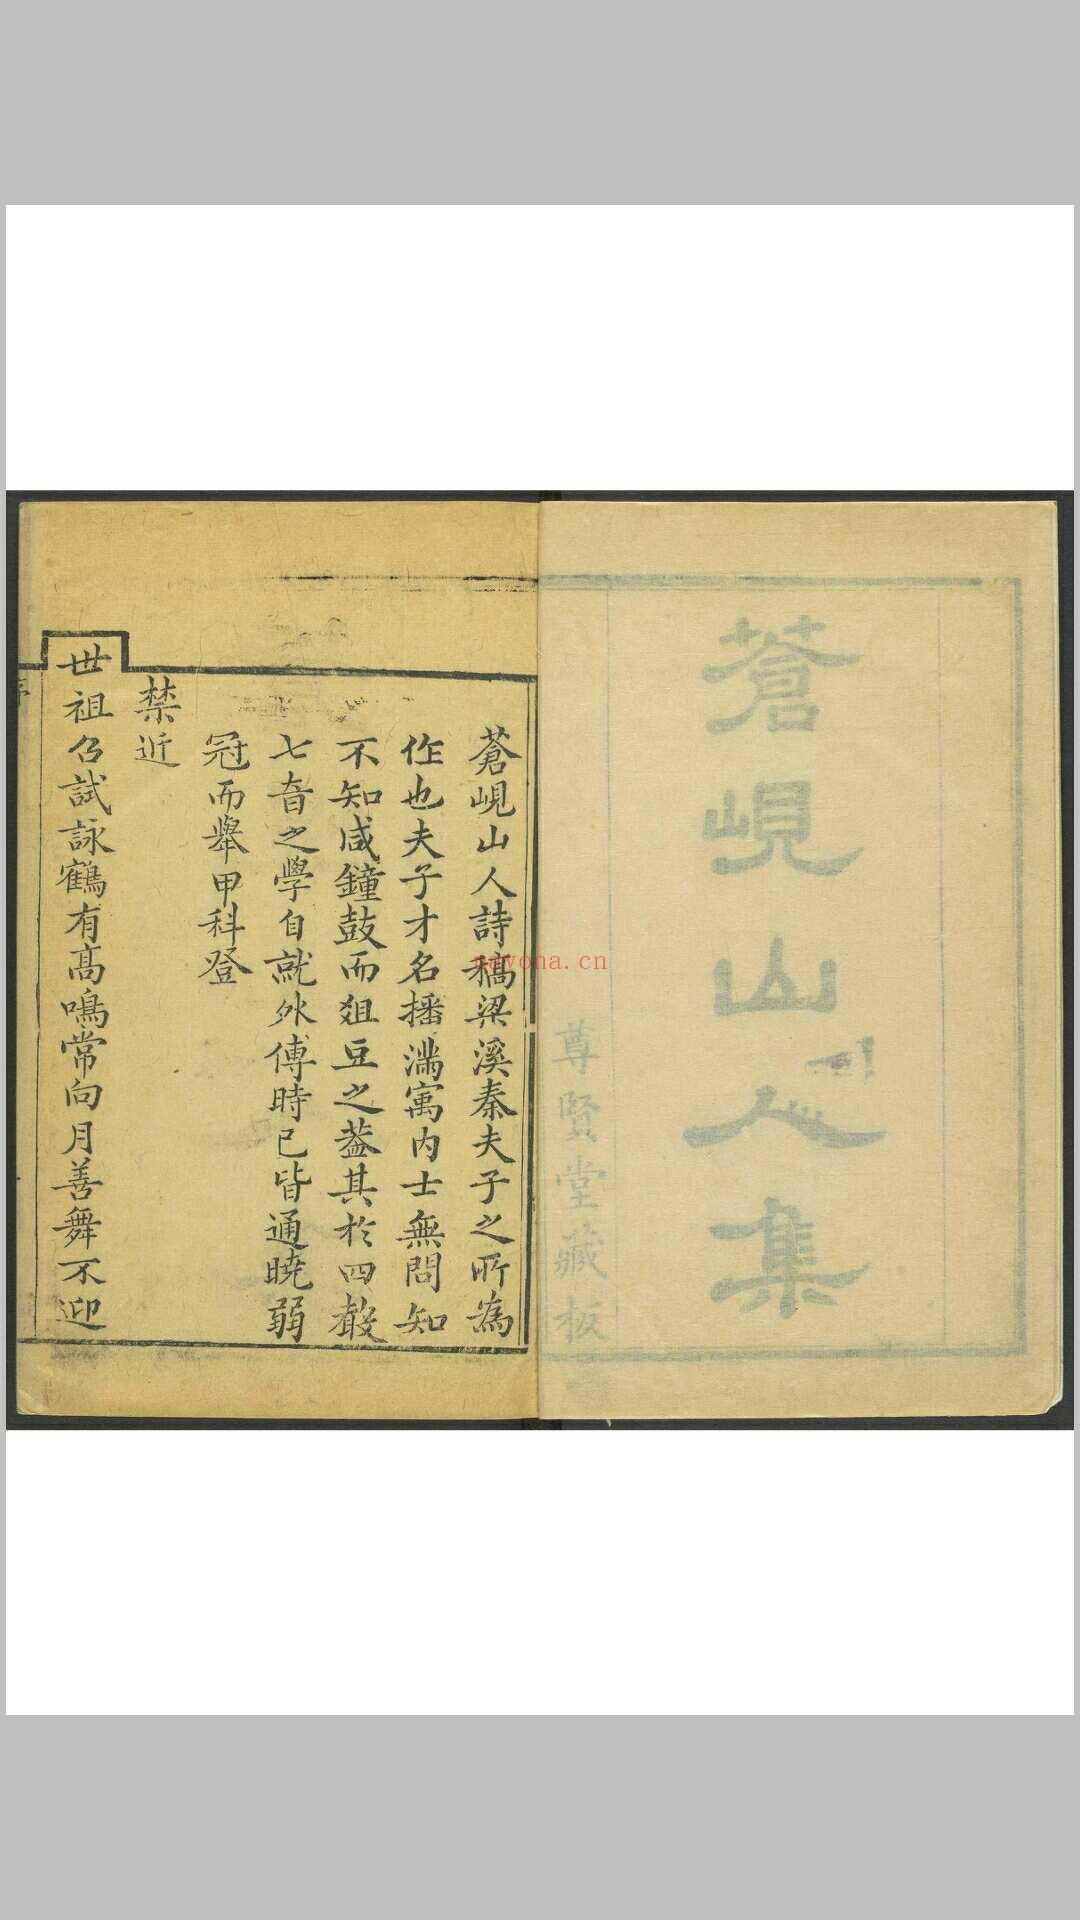 蒼峴山人集
尊賢堂藏板
蒼峴山人詩稿梁溪秦夫子之所為
作也夫子才名播滿寓內士無問知
不知咸鐘鼓而俎豆之葢其於四聲
七音之學自就外傅時已皆通曉弱
冠而舉甲科登
禁近
世祖召試詠鶴有高鳴常向月善舞不迎
nayona.cn